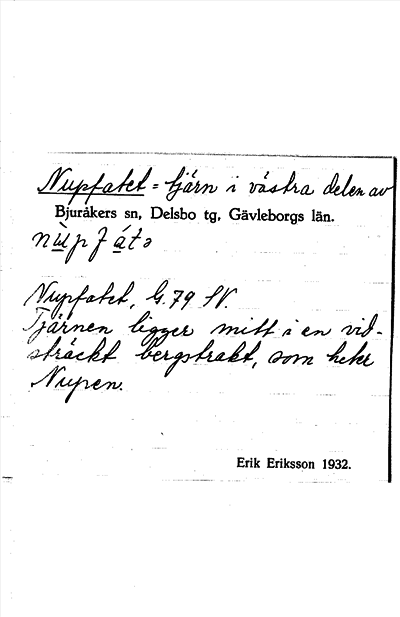 Nupfatet = tjärn i västra delen av
Bjuråkers sn, Delsbo tg, Gävleborgs län.
nùpfátə
Nupfatet, G. 79 SV.
Tjärnen ligger mitt i en vid-
sträckt bergstrakt, som heter
Nupen.
Erik Eriksson 1932.